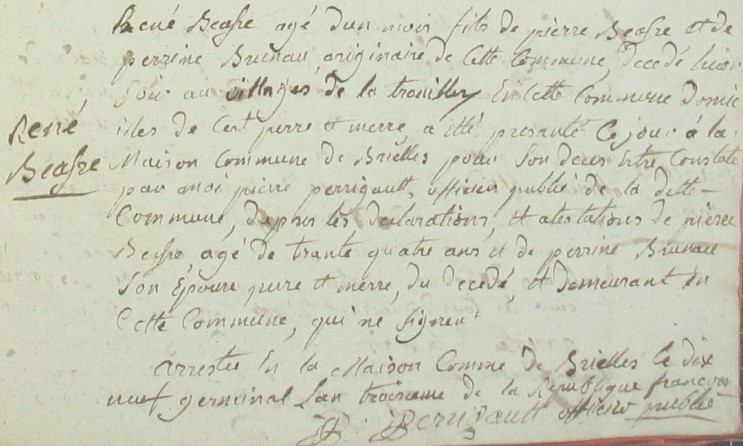 René Beasse agé dun mois fils de pierre Beasse et de
perrine Brunau, originaire de Cette Commune, decedé hier
Soir au villages de la trouillery En Cette Commune domici
René
Beasse
iles de Cest perre et merre, a été presanté Ce jour á la
Maison Commune de Brielles pour Son deces être Constaté
par moi pierre perrigault, officier publié de la ditte
Commune, dapres les declarations, et atestations de pierre
Beasse, agé de trante quatre ans et de perrine Brunau
Son Epouse perre et merre, du decedé, et demeurant en
Cette Commune, qui ne Signent
arresté En la Maison Comme de Brielles le dix
neuf germinal Lan troisieme de la Republique francois
P. Perrigault officier publié